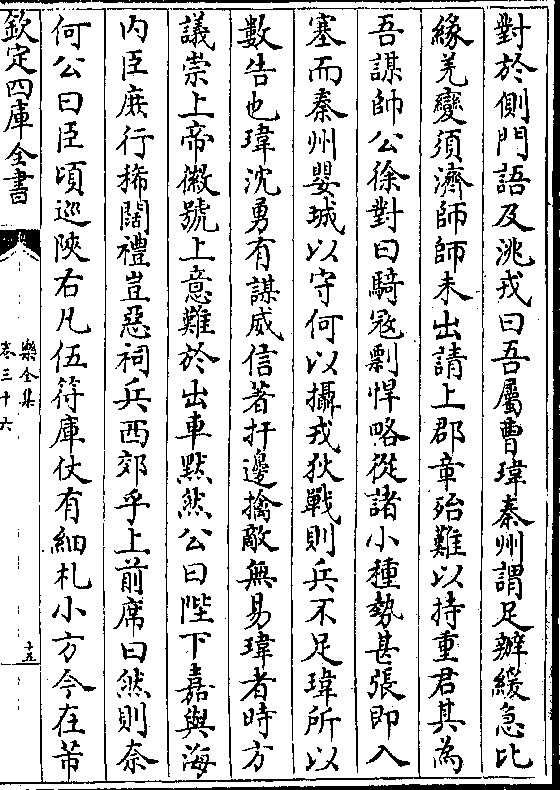 對於側門語及洮戎曰吾屬曹瑋秦州謂足辦緩急比
緣羌變須濟師師未出請上郡章殆難以持重君其為
吾謀帥公徐對曰騎冦剽悍略從諸小種勢甚張即入
塞而秦州嬰城以守何以攝戎狄戰則兵不足瑋所以
數告也瑋沈勇有謀威信著扞邊擒敵無易瑋者時方
議崇上帝徽號上意難於出車黙然公曰陛下嘉與海
内臣庶行搢闊禮豈惡祠兵西郊乎上前席曰然則奈
何公曰臣頃巡陜右凡伍符庫仗有細札小方今在芾
欽定四庫全書
樂全集
卷三十六
十五